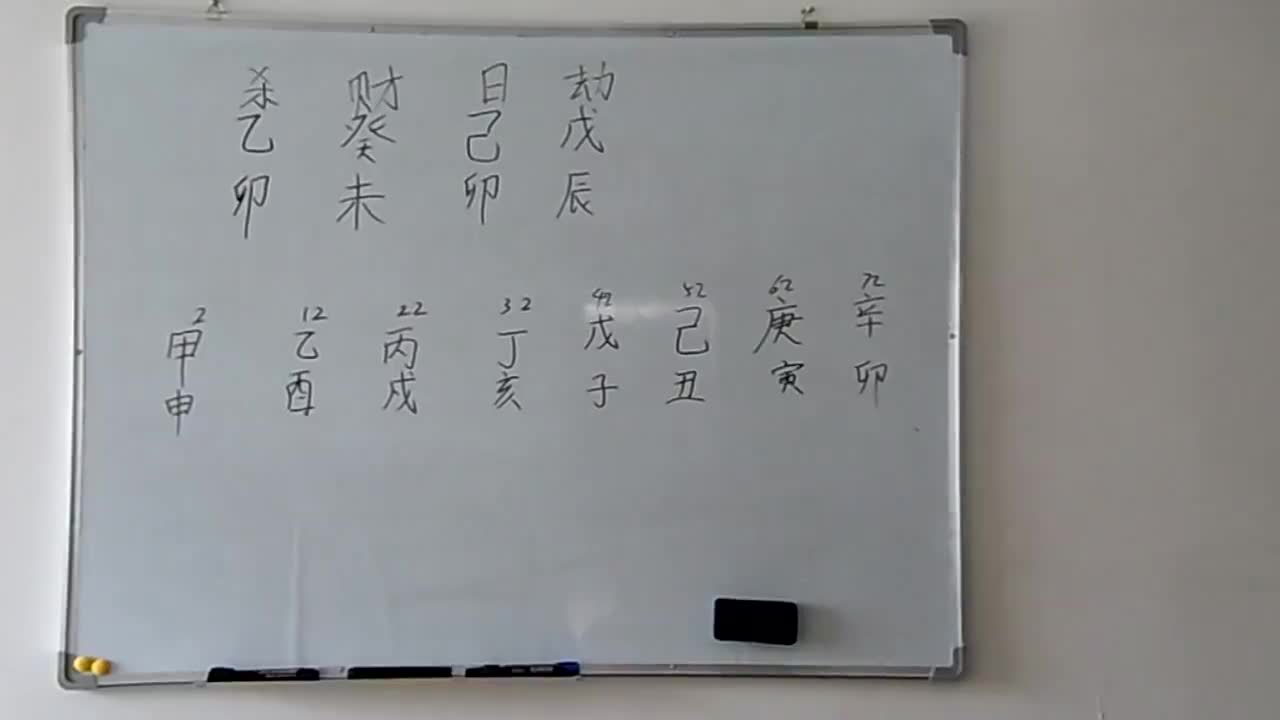 杀 财 日 劫
乙 癸 己 戊
卯 未 卯 辰
2 12 22 32 42 52 62 72
甲 乙 丙 丁 戊 己 庚 辛
申 酉 戌 亥 子 丑 寅 卯